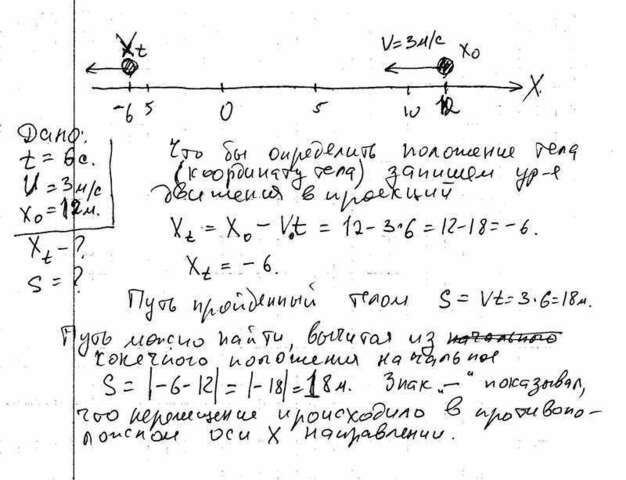 Xt
V=3м/с
X₀
-6 5 0 5 10 12 X
Дано:
t = 6с.
V = 3м/с
X₀ = 12м.
Xt - ?
S = ?
Что бы определить положение тела
(координату тела) запишем ур-е
движения в проекций
Xt = X₀ - V₀t = 12-3·6 = 12-18 = -6.
Xt = -6.
Путь пройденный телом S = Vt = 3·6 = 18м.
Путь можно найти, вычитая из начального
конечного положения начальное
S = |-6-12| = |-18| = 18м. Знак „-“ показывал,
что перемещение происходило в противопо-
ложном оси X направлении.